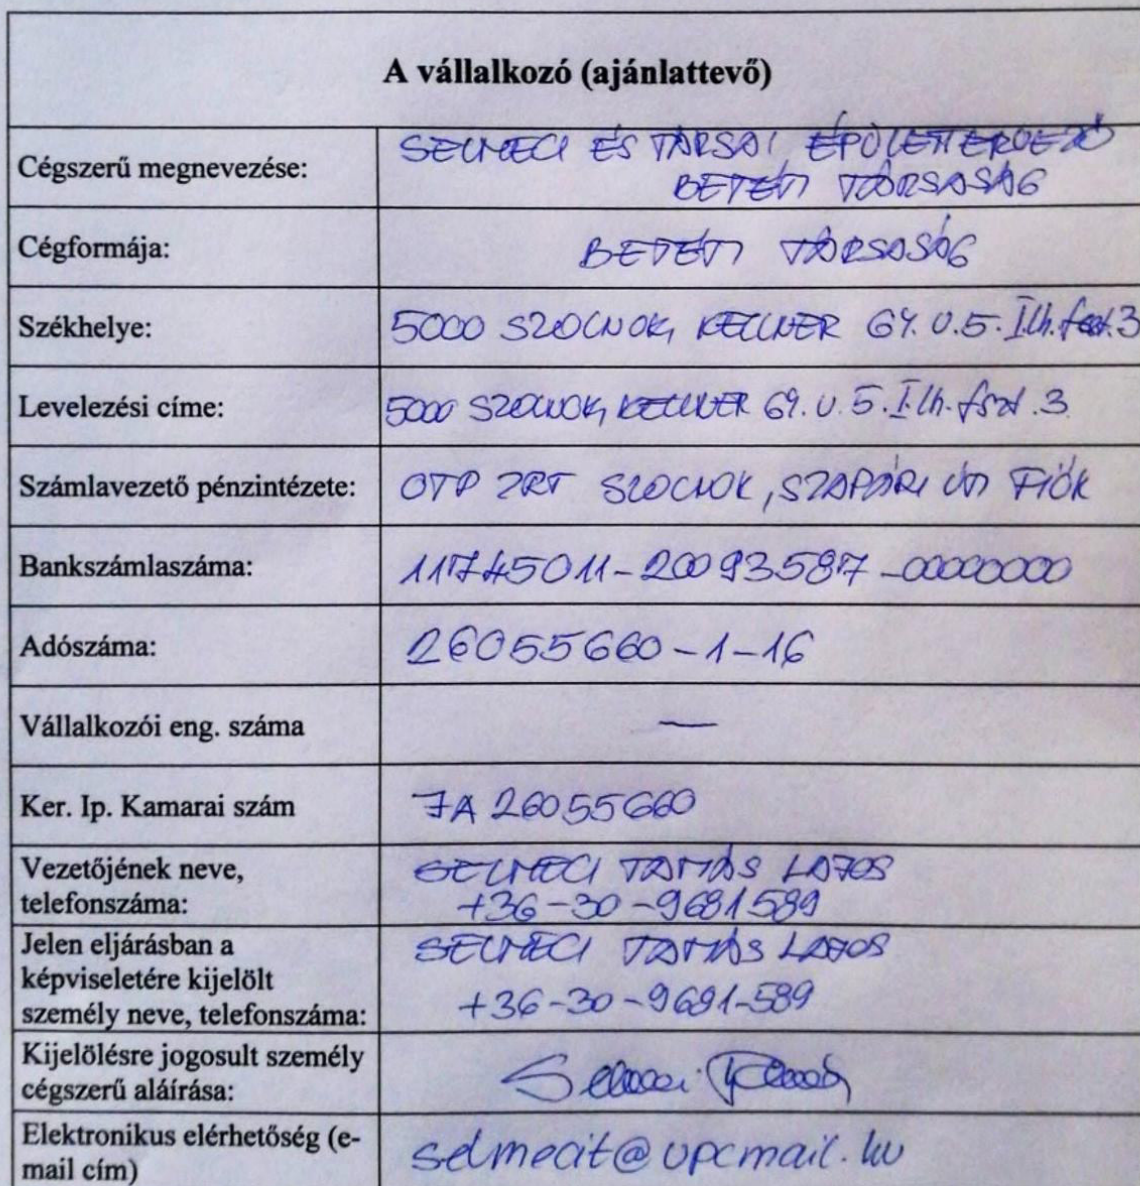 A vállalkozó (ajánlattevő)
Cégszerű megnevezése:
SELMECI ÉS TÁRSAI ÉPÜLETTERVEZŐ
BETÉTI TÁRSASÁG
Cégformája:
BETÉTI TÁRSASÁG
Székhelye:
5000 SZOLNOK, KELLNER GY. U. 5. I.lh. fszt. 3
Levelezési címe:
5000 SZOLNOK, KELLNER GY. U. 5. I. lh. fszt. 3.
Számlavezető pénzintézete:
OTP ZRT SZOLNOK, SZAPÁRI ÚTI FIÓK
Bankszámlaszáma:
11745011-20093587-00000000
Adószáma:
26055660-1-16
Vállalkozói eng. száma
—
Ker. Ip. Kamarai szám
JA 26055660
Vezetőjének neve,
telefonszáma:
SELMECI TAMÁS LAJOS
+36-30-9681589
Jelen eljárásban a
képviseletére kijelölt
személy neve, telefonszáma:
SELMECI TAMÁS LAJOS
+36-30-9681-589
Kijelölésre jogosult személy
cégszerű aláírása:
Selmeci Tamás
Elektronikus elérhetőség (e-
mail cím)
selmecit@upcmail.hu